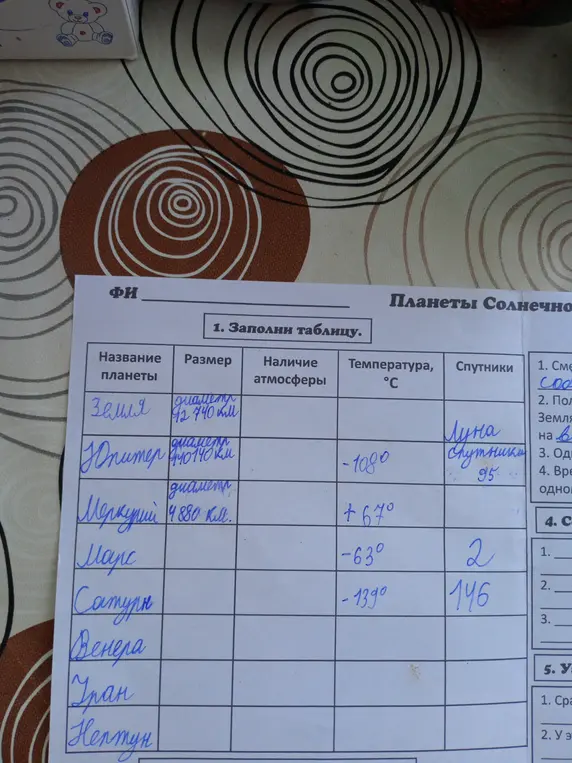 ФИ
Планеты Солнечно
1. Заполни таблицу.
Название планеты Размер Наличие атмосферы Температура, °С Спутники
Земля диаметр 12 740 км Луна
Юпитер диаметр 140 140 км -108° спутники 95
Меркурий диаметр 4 880 км. +67°
Марс -63° 2
Сатурн -139° 146
Венера
Уран
Нептун
1. Сме
2. Пол
Земля
на в
3. Оди
4. Вре
одно
4. С
1.
2.
3.
5. У
1. Сра
2. У э